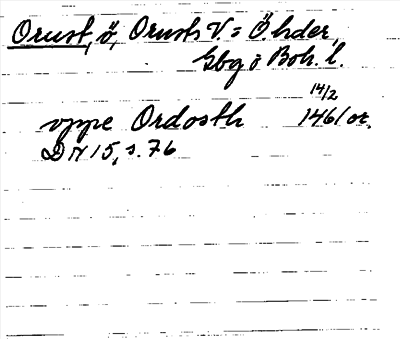 Orust, ö, Orusts V. o Ö hdr,
Gbg o Boh. l.
14/2
vppe Ordosth 1461 or.
DN 15, s. 76